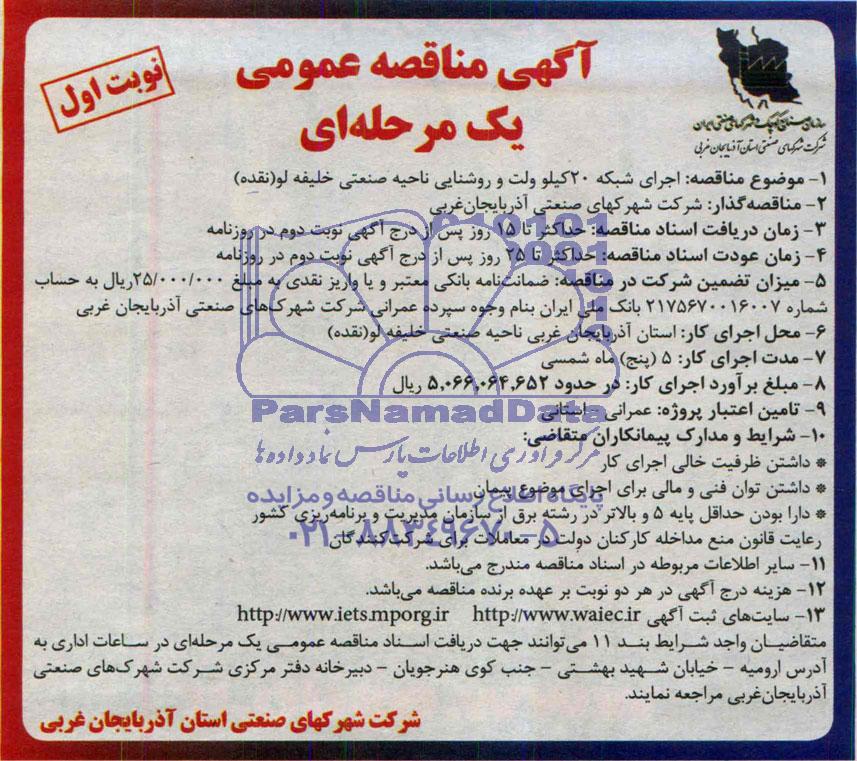 سازمان صنایع کوچک و شهرکهای صنعتی ایران
شرکت شهرکهای صنعتی استان آذربایجان غربی
آگهی مناقصه عمومی
یک مرحله‌ای
نوبت اول
۱- موضوع مناقصه: اجرای شبکه ۲۰کیلو ولت و روشنایی ناحیه صنعتی خلیفه لو(نقده)
۲- مناقصه‌گذار: شرکت شهرکهای صنعتی آذربایجان‌غربی
۳- زمان دریافت اسناد مناقصه: حداکثر تا ۱۵ روز پس از درج آگهی نوبت دوم در روزنامه
۴- زمان عودت اسناد مناقصه: حداکثر تا ۲۵ روز پس از درج آگهی نوبت دوم در روزنامه
۵- میزان تضمین شرکت در مناقصه: ضمانت‌نامه بانکی معتبر و یا واریز نقدی به مبلغ ۲۵/۰۰۰/۰۰۰ریال به حساب
شماره ۲۱۷۵۶۷۰۰۱۶۰۰۷ بانک ملی ایران بنام وجوه سپرده عمرانی شرکت شهرک‌های صنعتی آذربایجان غربی
۶- محل اجرای کار: استان آذربایجان غربی ناحیه صنعتی خلیفه لو(نقده)
۷- مدت اجرای کار: ۵ (پنج) ماه شمسی
۸- مبلغ برآورد اجرای کار: در حدود ۵,۰۶۶,۰۶۴,۶۵۲ ریال
۹- تامین اعتبار پروژه: عمرانی - استانی
ParsNamadData
۱۰- شرایط و مدارک پیمانکاران متقاضی:
مرکز فرآوری اطلاعات پارس نماد داده‌ها
* داشتن ظرفیت خالی اجرای کار
* داشتن توان فنی و مالی برای اجرای موضوع پیمان
پایگاه اطلاع رسانی مناقصه و مزایده
* دارا بودن حداقل پایه ۵ و بالاتر در رشته برق از سازمان مدیریت و برنامه‌ریزی کشور
۰۲۱-۸۸۳۴۹۶۷۰-۵
رعایت قانون منع مداخله کارکنان دولت در معاملات برای شرکت‌کنندگان
۱۱- سایر اطلاعات مربوطه در اسناد مناقصه مندرج می‌باشد.
۱۲- هزینه درج آگهی در هر دو نوبت بر عهده برنده مناقصه می‌باشد.
۱۳- سایت‌های ثبت آگهی http://www.waiec.ir http://www.iets.mporg.ir
متقاضیان واجد شرایط بند ۱۱ می‌توانند جهت دریافت اسناد مناقصه عمومی یک مرحله‌ای در ساعات اداری به
آدرس ارومیه - خیابان شهید بهشتی - جنب کوی هنرجویان - دبیرخانه دفتر مرکزی شرکت شهرک‌های صنعتی
آذربایجان‌غربی مراجعه نمایند.
شرکت شهرکهای صنعتی استان آذربایجان غربی